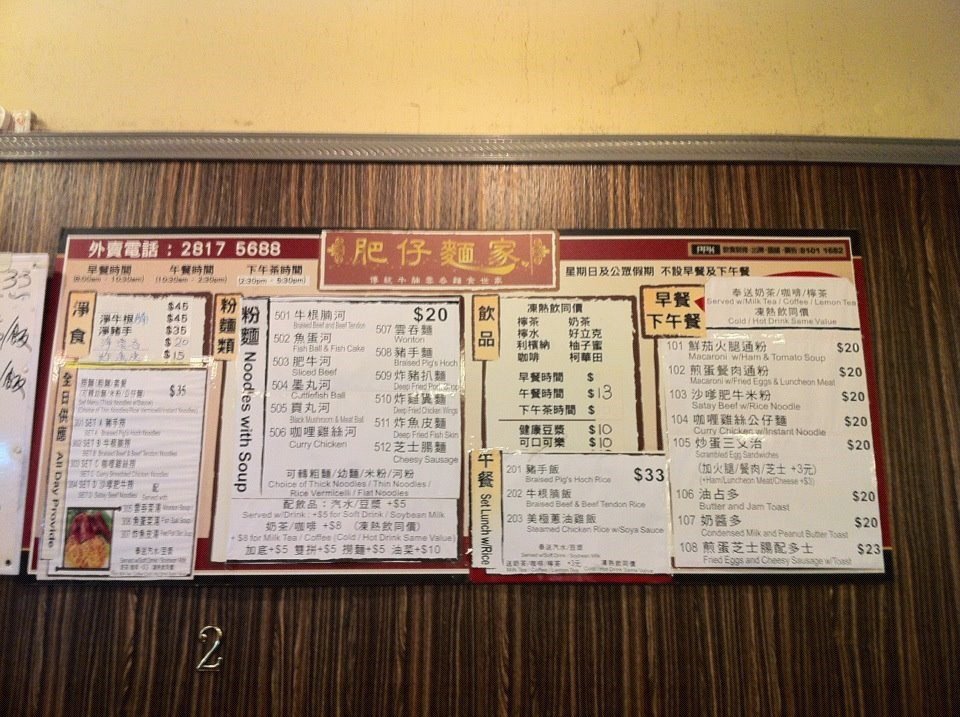 33
飯
飯
外賣電話：2817 5688
肥仔麵家
早餐時間 午餐時間 下午茶時間
(2:30pm - 5:30pm)
星期日及公眾假期 不設早餐及下午餐
淨食
$45
淨牛根腩 $45
淨豬手 $35
$20
$15
全日供應 All Day Provide
$35
301 SET A 豬手撈
SET A Braised Pig's Hoch Noodles
302 SET B 牛根腩撈
SET B Braised Beef & Beef Tendon Noodles
303 SET C 咖喱雞絲撈
SET C Curry Shredded Chicken Noodles
304 SET D 沙嗲肥牛撈
SET D Satay Beef Noodles
配
Served with
粉麵類
粉麵 Noodles with Soup
$20
501 牛根腩河
Braised Beef and Beef Tendon
502 魚蛋河
Fish Ball & Fish Cake
503 肥牛河
Sliced Beef
504 墨丸河
Cuttlefish Ball
505 貢丸河
Black Mushroom & Meat Ball
506 咖喱雞絲河
Curry Chicken
507 雲吞麵
Wonton
508 豬手麵
Braised Pig's Hoch
509 炸豬扒麵
Deep Fried Pork Chop
510 炸雞翼麵
Deep Fried Chicken Wings
511 炸魚皮麵
Deep Fried Fish Skin
512 芝士腸麵
Cheesy Sausage
可轉粗麵/幼麵/米粉/河粉
Choice of Thick Noodles / Thin Noodles /
Rice Vermicelli / Flat Noodles
配飲品：汽水/豆漿 +$5
Served w/Drink : +$5 for Soft Drink / Soybean Milk
奶茶/咖啡 +$8 (凍熱飲同價)
+$8 for Milk Tea / Coffee (Cold / Hot Drink Same Value)
加底+$5 雙拼+$5 撈麵+$5 油菜+$10
飲品
凍熱飲同價
檸茶 奶茶
檸水 好立克
利檳納 柚子蜜
咖啡 柯華田
早餐時間 $
午餐時間 $13
下午茶時間 $
健康豆漿 $10
可口可樂 $10
午餐 Set Lunch w/Rice
$33
201 豬手飯
Braised Pig's Hoch Rice
202 牛根腩飯
Braised Beef & Beef Tendon Rice
203 美極蔥油雞飯
Steamed Chicken Rice w/Soya Sauce
奉送汽水/豆漿
Served w/Soft Drink / Soybean Milk
送奶茶/咖啡/檸茶 +3元 凍熱飲同價
Milk Tea / Coffee / Lemon Tea Cold / Hot Drink Same Value
早餐
下午餐
奉送奶茶/咖啡/檸茶
Served w/Milk Tea / Coffee / Lemon Tea
凍熱飲同價
Cold / Hot Drink Same Value
101 鮮茄火腿通粉 $20
Macaroni w/Ham & Tomato Soup
102 煎蛋餐肉通粉 $20
Macaroni w/Fried Eggs & Luncheon Meat
103 沙嗲肥牛米粉 $20
Satay Beef w/Rice Noodle
104 咖喱雞絲公仔麵 $20
Curry Chicken w/Instant Noodle
105 炒蛋三文治 $20
Scrambled Egg Sandwiches
(加火腿/餐肉/芝士 +3元)
(+Ham/Luncheon Meat/Cheese +$3)
106 油占多 $20
Butter and Jam Toast
107 奶醬多 $20
Condensed Milk and Peanut Butter Toast
108 煎蛋芝士腸配多士 $23
Fried Eggs and Cheesy Sausage w/Toast
2